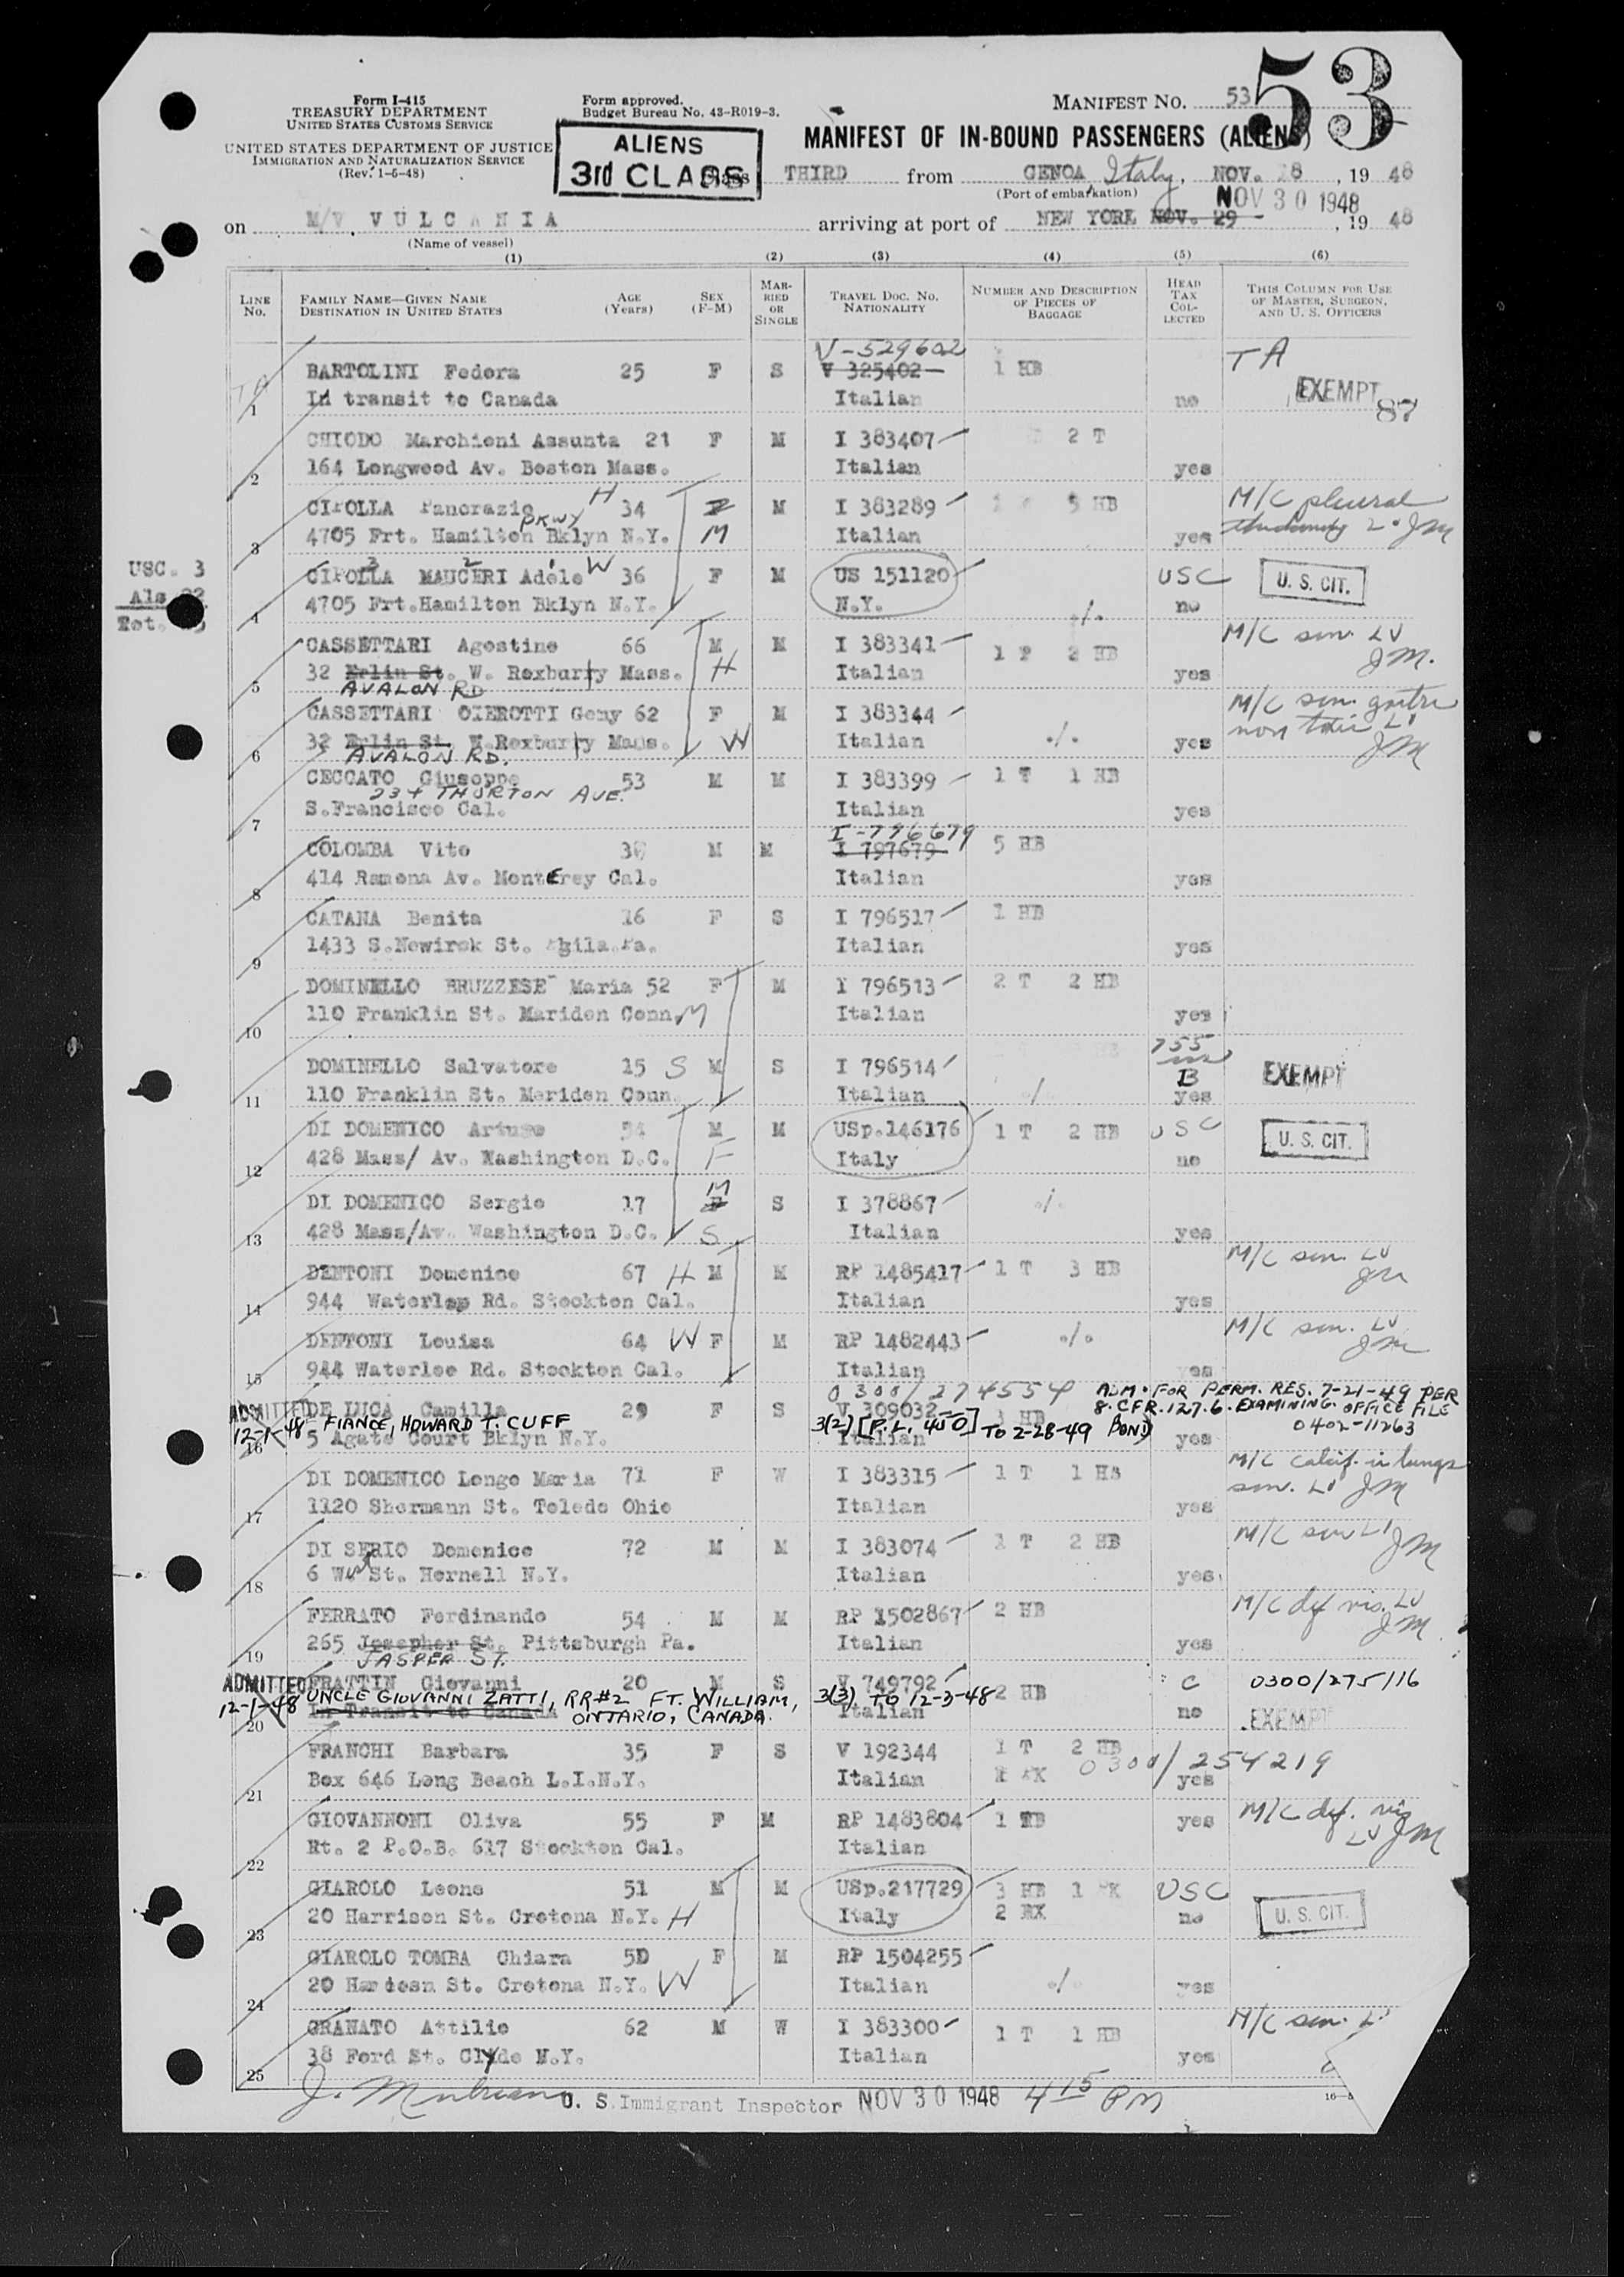 Form I-415
TREASURY DEPARTMENT
UNITED STATES CUSTOMS SERVICE
UNITED STATES DEPARTMENT OF JUSTICE
IMMIGRATION AND NATURALIZATION SERVICE
(Rev. 1-6-48)
Form approved.
Budget Bureau No. 43-R019-3.
ALIENS
3rd CLASS
MANIFEST NO. 53
53
MANIFEST OF IN-BOUND PASSENGERS (ALIENS)
THIRD from GENOA Italy, NOV. 18, 19 48
(Port of embarkation)
NOV 30 1948
on M/V VULCANIA arriving at port of NEW YORK NOV. 29, 19 48
(Name of vessel)
(1) (2) (3) (4) (5) (6)
LINE No. FAMILY NAME—GIVEN NAME DESTINATION IN UNITED STATES AGE (Years) SEX (F-M) MARRIED OR SINGLE TRAVEL DOC. No. NATIONALITY NUMBER AND DESCRIPTION OF PIECES OF BAGGAGE HEAD TAX COLLECTED THIS COLUMN FOR USE OF MASTER, SURGEON, AND U. S. OFFICERS
V-529602 TA
BARTOLINI Fedora 25 F S V 325402 1 HB EXEMPT
TA 1 In transit to Canada Italian no 87
CHIODO Marchioni Assunta 21 F M I 383407 2 T
2 164 Longwood Av. Boston Mass. Italian yes
CIPOLLA Pancrazio H 34 F M I 383289 5 HB M/C pleural
PKWY
3 4705 Frt. Hamilton Bklyn N.Y. M Italian yes 2 JM
USC. 3
Als 22
3 2 1
CIPOLLA MAUCERI Adele W 36 F M US 151120 USC U. S. CIT.
4 4705 Frt. Hamilton Bklyn N.Y. N.Y. ./. no
CASSETTARI Agostino 66 M M I 383341 1 P 2 HB M/C sen. LV JM.
5 32 Erlin St. W. Roxburry Mass. H Italian yes
AVALON RD
CASSETTARI CIEROTTI Geny 62 F M I 383344 M/C sen. goitre
6 32 Erlin St. W. Roxburry Mass. W Italian ./. yes non toxic LV JM
AVALON RD.
CECCATO Giuseppe 53 M M I 383399 1 T 1 HB
234 THURTON AVE.
7 S.Francisco Cal. Italian yes
I-796679
COLOMBA Vito M M I 797679 5 HB
8 414 Ramona Av. Monterey Cal. Italian yes
CATANA Benita 16 F S I 796517 1 HB
9 1433 S.Newirok St. Phila.Pa. Italian yes
DOMINELLO BRUZZESE Maria 52 F M I 796513 2 T 2 HB
10 110 Franklin St. Mariden Conn. M Italian yes
DOMINELLO Salvatore 15 S M S I 796514 B EXEMPT
11 110 Franklin St. Meriden Conn. Italian yes
DI DOMENICO Arturo 54 M M USp.146176 1 T 2 HB USC U. S. CIT.
12 428 Mass/ Av. Washington D.C. F Italy no
M
DI DOMENICO Sergio 17 F S I 378867 ./.
13 428 Mass/Av. Washington D.C. S Italian yes
DENTONI Domenico 67 H M M RP 1485417 1 T 3 HB M/C sen. LV JM
14 944 Waterloo Rd. Stockton Cal. Italian yes
DENTONI Louisa 64 W F M RP 1482443 ./. M/C sen. LV JM
15 944 Waterloo Rd. Stockton Cal. Italian yes
0300/274554 ADM. FOR PERM. RES. 7-21-49 PER
ADMITTED DE LUCA Camilla 29 F S V 309032 HB 8.CFR.127.6. EXAMINING OFFICE FILE
12-1-48 FIANCE, HOWARD T. CUFF 3(2) [P.L. 450] TO 2-28-49 BOND 0402-11263
16 5 Agate Court Bklyn N.Y. Italian yes
DI DOMENICO Longo Maria 71 F W I 383315 1 T 1 HB M/C calcif. in lungs
17 1120 Shermann St. Toledo Ohio Italian yes sen. LV JM
DI SERIO Domenico 72 M M I 383074 1 T 2 HB M/C sen LV JM
18 6 St. Hornell N.Y. Italian yes
FERRATO Ferdinando 54 M M RP 1502867 2 HB M/C def vis. LV JM
19 265 Josepher St. Pittsburgh Pa. Italian yes
JASPER ST.
ADMITTED FRATTIN Giovanni 20 M S V 749792 2 HB C 0300/275116
12-1-48 UNCLE GIOVANNI ZATTI, RR#2 FT. WILLIAM, 3(3) TO 12-3-48
20 In Transit to Canada ONTARIO, CANADA. Italian no EXEMPT
FRANCHI Barbara 35 F S V 192344 1 T 2 HB 0300/254219
21 Box 646 Long Beach L.I.N.Y. Italian yes
GIOVANNONI Oliva 55 F M RP 1483804 1 yes M/C def. vis LV JM
22 Rt. 2 P.O.B. 617 Stockton Cal. Italian
GIAROLO Leone 51 M M USp.217729 3 HB 1 USC U. S. CIT.
23 20 Harrison St. Cretona N.Y. H Italy 2 no
GIAROLO TOMBA Chiara 50 F M RP 1504255
24 20 Hardesn St. Cretona N.Y. W Italian ./. yes
GRANATO Attilio 62 M W I 383300 1 T 1 HB M/C sen.
25 38 Ford St. Clyde N.Y. Italian yes
U. S. Immigrant Inspector NOV 30 1948 4 15 PM